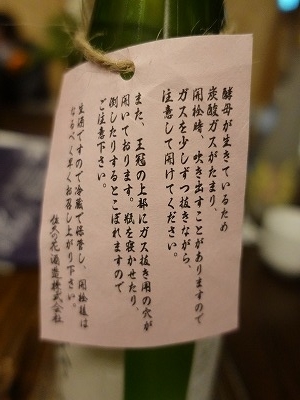 酵母が生きているため
炭酸ガスがたまり、
開栓時、吹き出すことがありますので
ガスを少しずつ抜きながら、
注意して開けてください。
また、王冠の上部にガス抜き用の穴が
開いております。瓶を寝かせたり、
倒したりするとこぼれますので
ご注意下さい。
生酒ですので冷蔵で保管し、開栓後は
なるべく早くお召し上がり下さい。
住乃花酒造株式会社